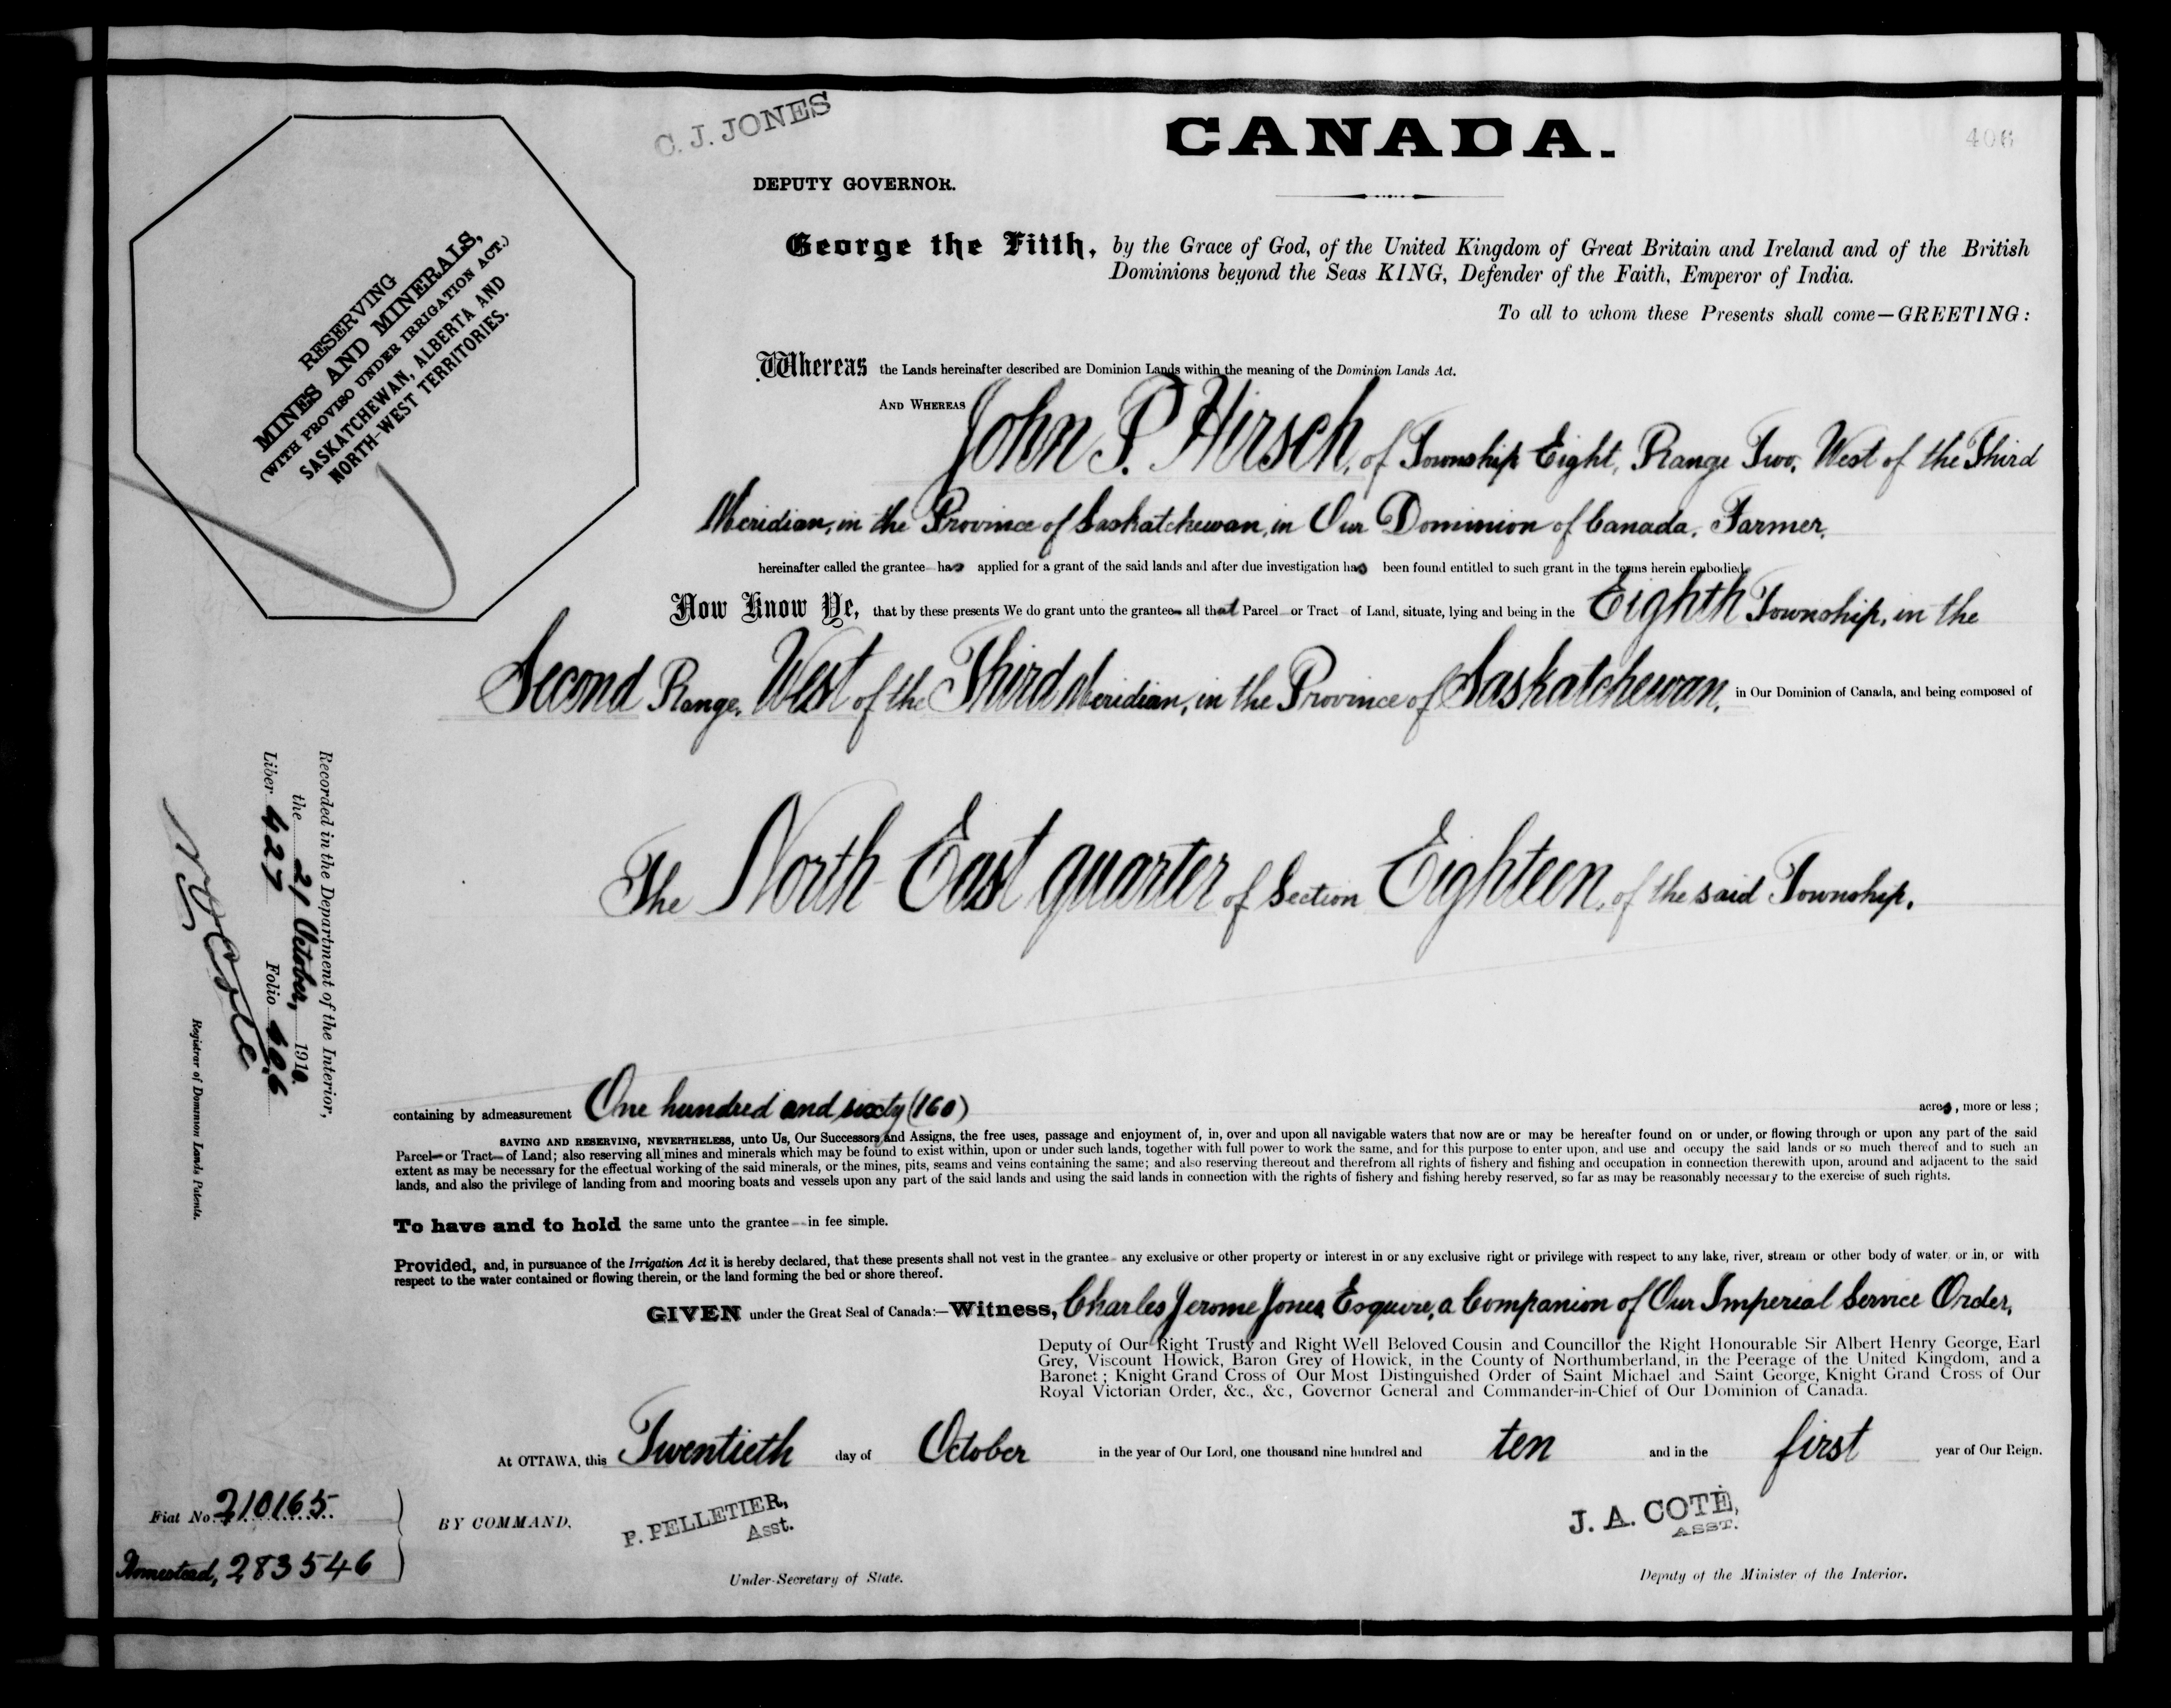 C. J. JONES
CANADA.
406
DEPUTY GOVERNOR.
George the Fifth, by the Grace of God, of the United Kingdom of Great Britain and Ireland and of the British
Dominions beyond the Seas KING, Defender of the Faith, Emperor of India.
To all to whom these Presents shall come—GREETING:
RESERVING
MINES AND MINERALS,
(WITH PROVISO UNDER IRRIGATION ACT.)
SASKATCHEWAN, ALBERTA AND
NORTH-WEST TERRITORIES.
Whereas the Lands hereinafter described are Dominion Lands within the meaning of the Dominion Lands Act.
AND WHEREAS John P. Hirsch, of Township Eight, Range Two, West of the Third
Meridian, in the Province of Saskatchewan, in Our Dominion of Canada, Farmer,
hereinafter called the grantee has applied for a grant of the said lands and after due investigation has been found entitled to such grant in the terms herein embodied.
Now Know Ye, that by these presents We do grant unto the grantee all that Parcel or Tract of Land, situate, lying and being in the Eighth Township, in the
Second Range, West of the Third Meridian, in the Province of Saskatchewan, in Our Dominion of Canada, and being composed of
The North East quarter of Section Eighteen, of the said Township.
Recorded in the Department of the Interior,
the 21 October, 1910.
Liber 427 Folio 406
Registrar of Dominion Lands Patents.
containing by admeasurement One hundred and sixty (160) acres, more or less;
SAVING AND RESERVING, NEVERTHELESS, unto Us, Our Successors and Assigns, the free uses, passage and enjoyment of, in, over and upon all navigable waters that now are or may be hereafter found on or under, or flowing through or upon any part of the said
Parcel or Tract of Land; also reserving all mines and minerals which may be found to exist within, upon or under such lands, together with full power to work the same, and for this purpose to enter upon, and use and occupy the said lands or so much thereof and to such an
extent as may be necessary for the effectual working of the said minerals, or the mines, pits, seams and veins containing the same; and also reserving thereout and therefrom all rights of fishery and fishing and occupation in connection therewith upon, around and adjacent to the said
lands, and also the privilege of landing from and mooring boats and vessels upon any part of the said lands and using the said lands in connection with the rights of fishery and fishing hereby reserved, so far as may be reasonably necessary to the exercise of such rights.
To have and to hold the same unto the grantee in fee simple.
Provided, and, in pursuance of the Irrigation Act it is hereby declared, that these presents shall not vest in the grantee any exclusive or other property or interest in or any exclusive right or privilege with respect to any lake, river, stream or other body of water, or in, or with
respect to the water contained or flowing therein, or the land forming the bed or shore thereof.
GIVEN under the Great Seal of Canada:—Witness, Charles Jerome Jones, Esquire, a Companion of Our Imperial Service Order,
Deputy of Our Right Trusty and Right Well Beloved Cousin and Councillor the Right Honourable Sir Albert Henry George, Earl
Grey, Viscount Howick, Baron Grey of Howick, in the County of Northumberland, in the Peerage of the United Kingdom, and a
Baronet; Knight Grand Cross of Our Most Distinguished Order of Saint Michael and Saint George, Knight Grand Cross of Our
Royal Victorian Order, &c., &c., Governor General and Commander-in-Chief of Our Dominion of Canada.
At OTTAWA, this Twentieth day of October in the year of Our Lord, one thousand nine hundred and ten and in the first year of Our Reign.
Fiat No. 210165
Homestead, 283546
BY COMMAND,
P. PELLETIER,
Asst.
Under-Secretary of State.
J. A. COTÉ,
ASST.
Deputy of the Minister of the Interior.